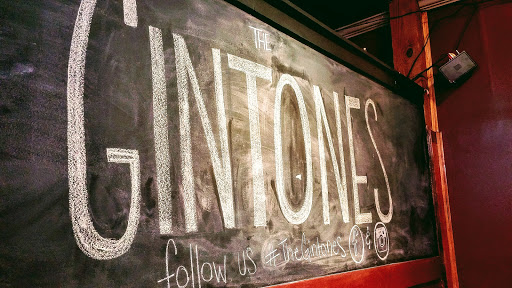 THE
GINTONES
follow us #TheGintones f &